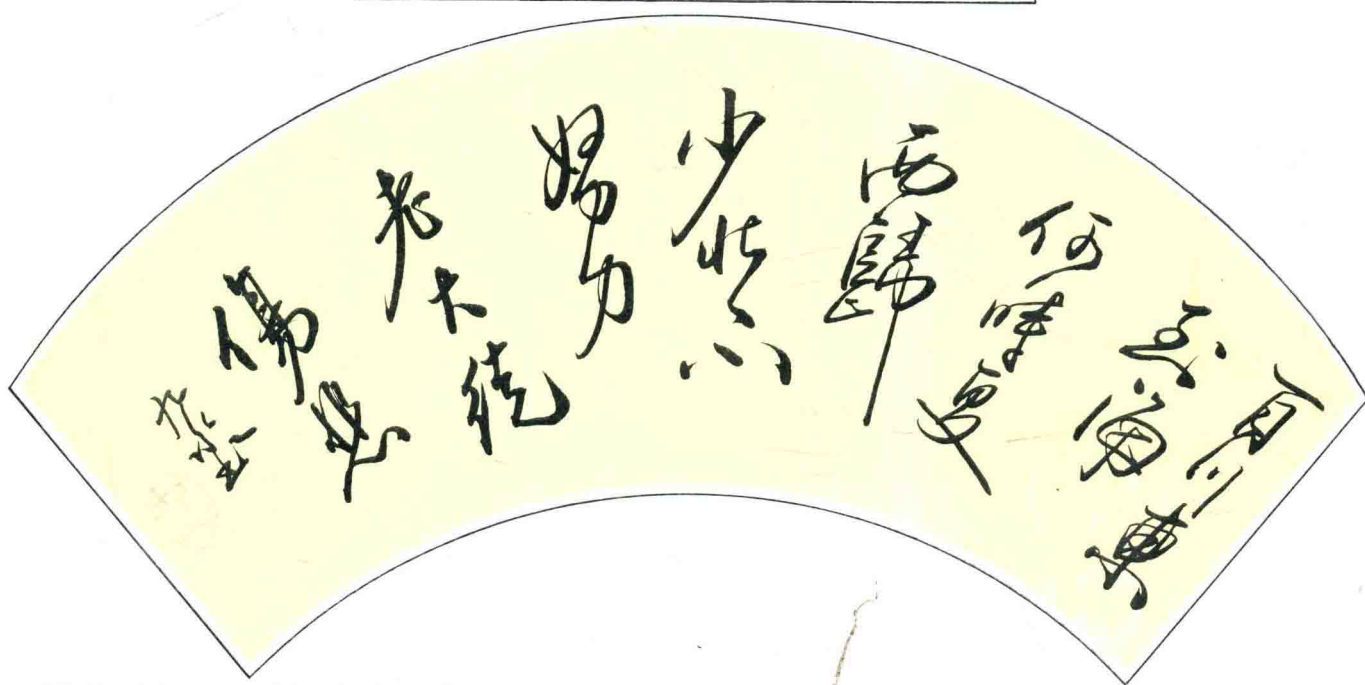 百川東
到海
何時復
西歸
少壯不
努力
老大徒
傷悲